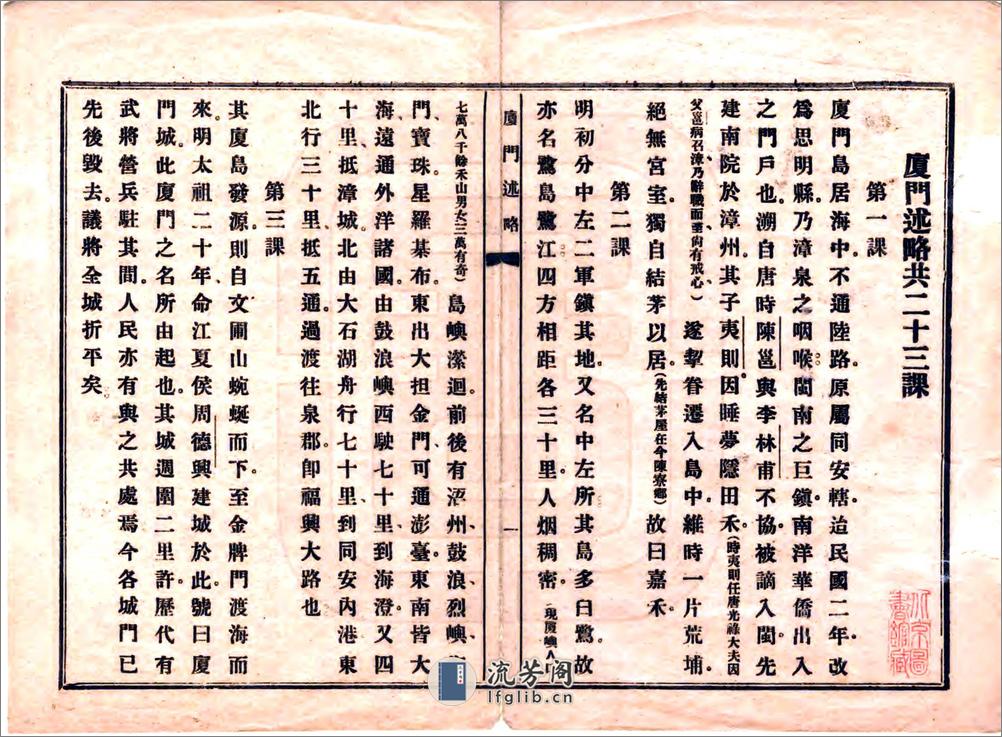 廈門述略共二十三課
第一課
廈門島居海中不通陸路。原屬同安轄。迨民國二年。改
爲思明縣。乃漳泉之咽喉。閩南之巨鎭。南洋華僑出入
之門戶也。溯自唐時陳邕與李林甫不協。被謫入閩。先
建南院於漳州。其子夷則。因睡夢隱田禾。(時夷則任唐光祿大夫因
父邕病召諫乃辭職而歸尙有戒心)遂挈眷遷入島中。維時一片荒埔。
絕無宮室。獨自結茅以居。(先結茅屋在今陳寮鄉)故曰嘉禾。
第二課
明初分中左二軍鎭其地。又名中左所。其島多白鷺。故
亦名鷺島鷺江。四方相距各三十里。人烟稠密。(現厦嶼人口
廈門述略
一
七萬八千餘禾山男女三萬有奇)島嶼瀠迴。前後有浯州、鼓浪、烈嶼、
門、寶珠、星羅棊布。東出大担金門、可通澎臺。東南皆大
海、遠通外洋諸國。由鼓浪嶼西駛七十里、到海澄。又四
十里、抵漳城。北由大石湖舟行七十里、到同安內港。東
北行三十里、抵五通過渡往泉郡。卽福興大路也
第三課
其廈島發源。則自文圃山蜿蜒而下。至金牌門渡海而
來。明太祖二十年。命江夏侯周德興建城於此。號曰廈
門城。此廈門之名所由起也。其城週圍二里許。歷代有
武將營兵駐其間。人民亦有與之共處焉。今各城門已
先後毀去。議將全城折平矣。
流芳阁
lfglib.cn